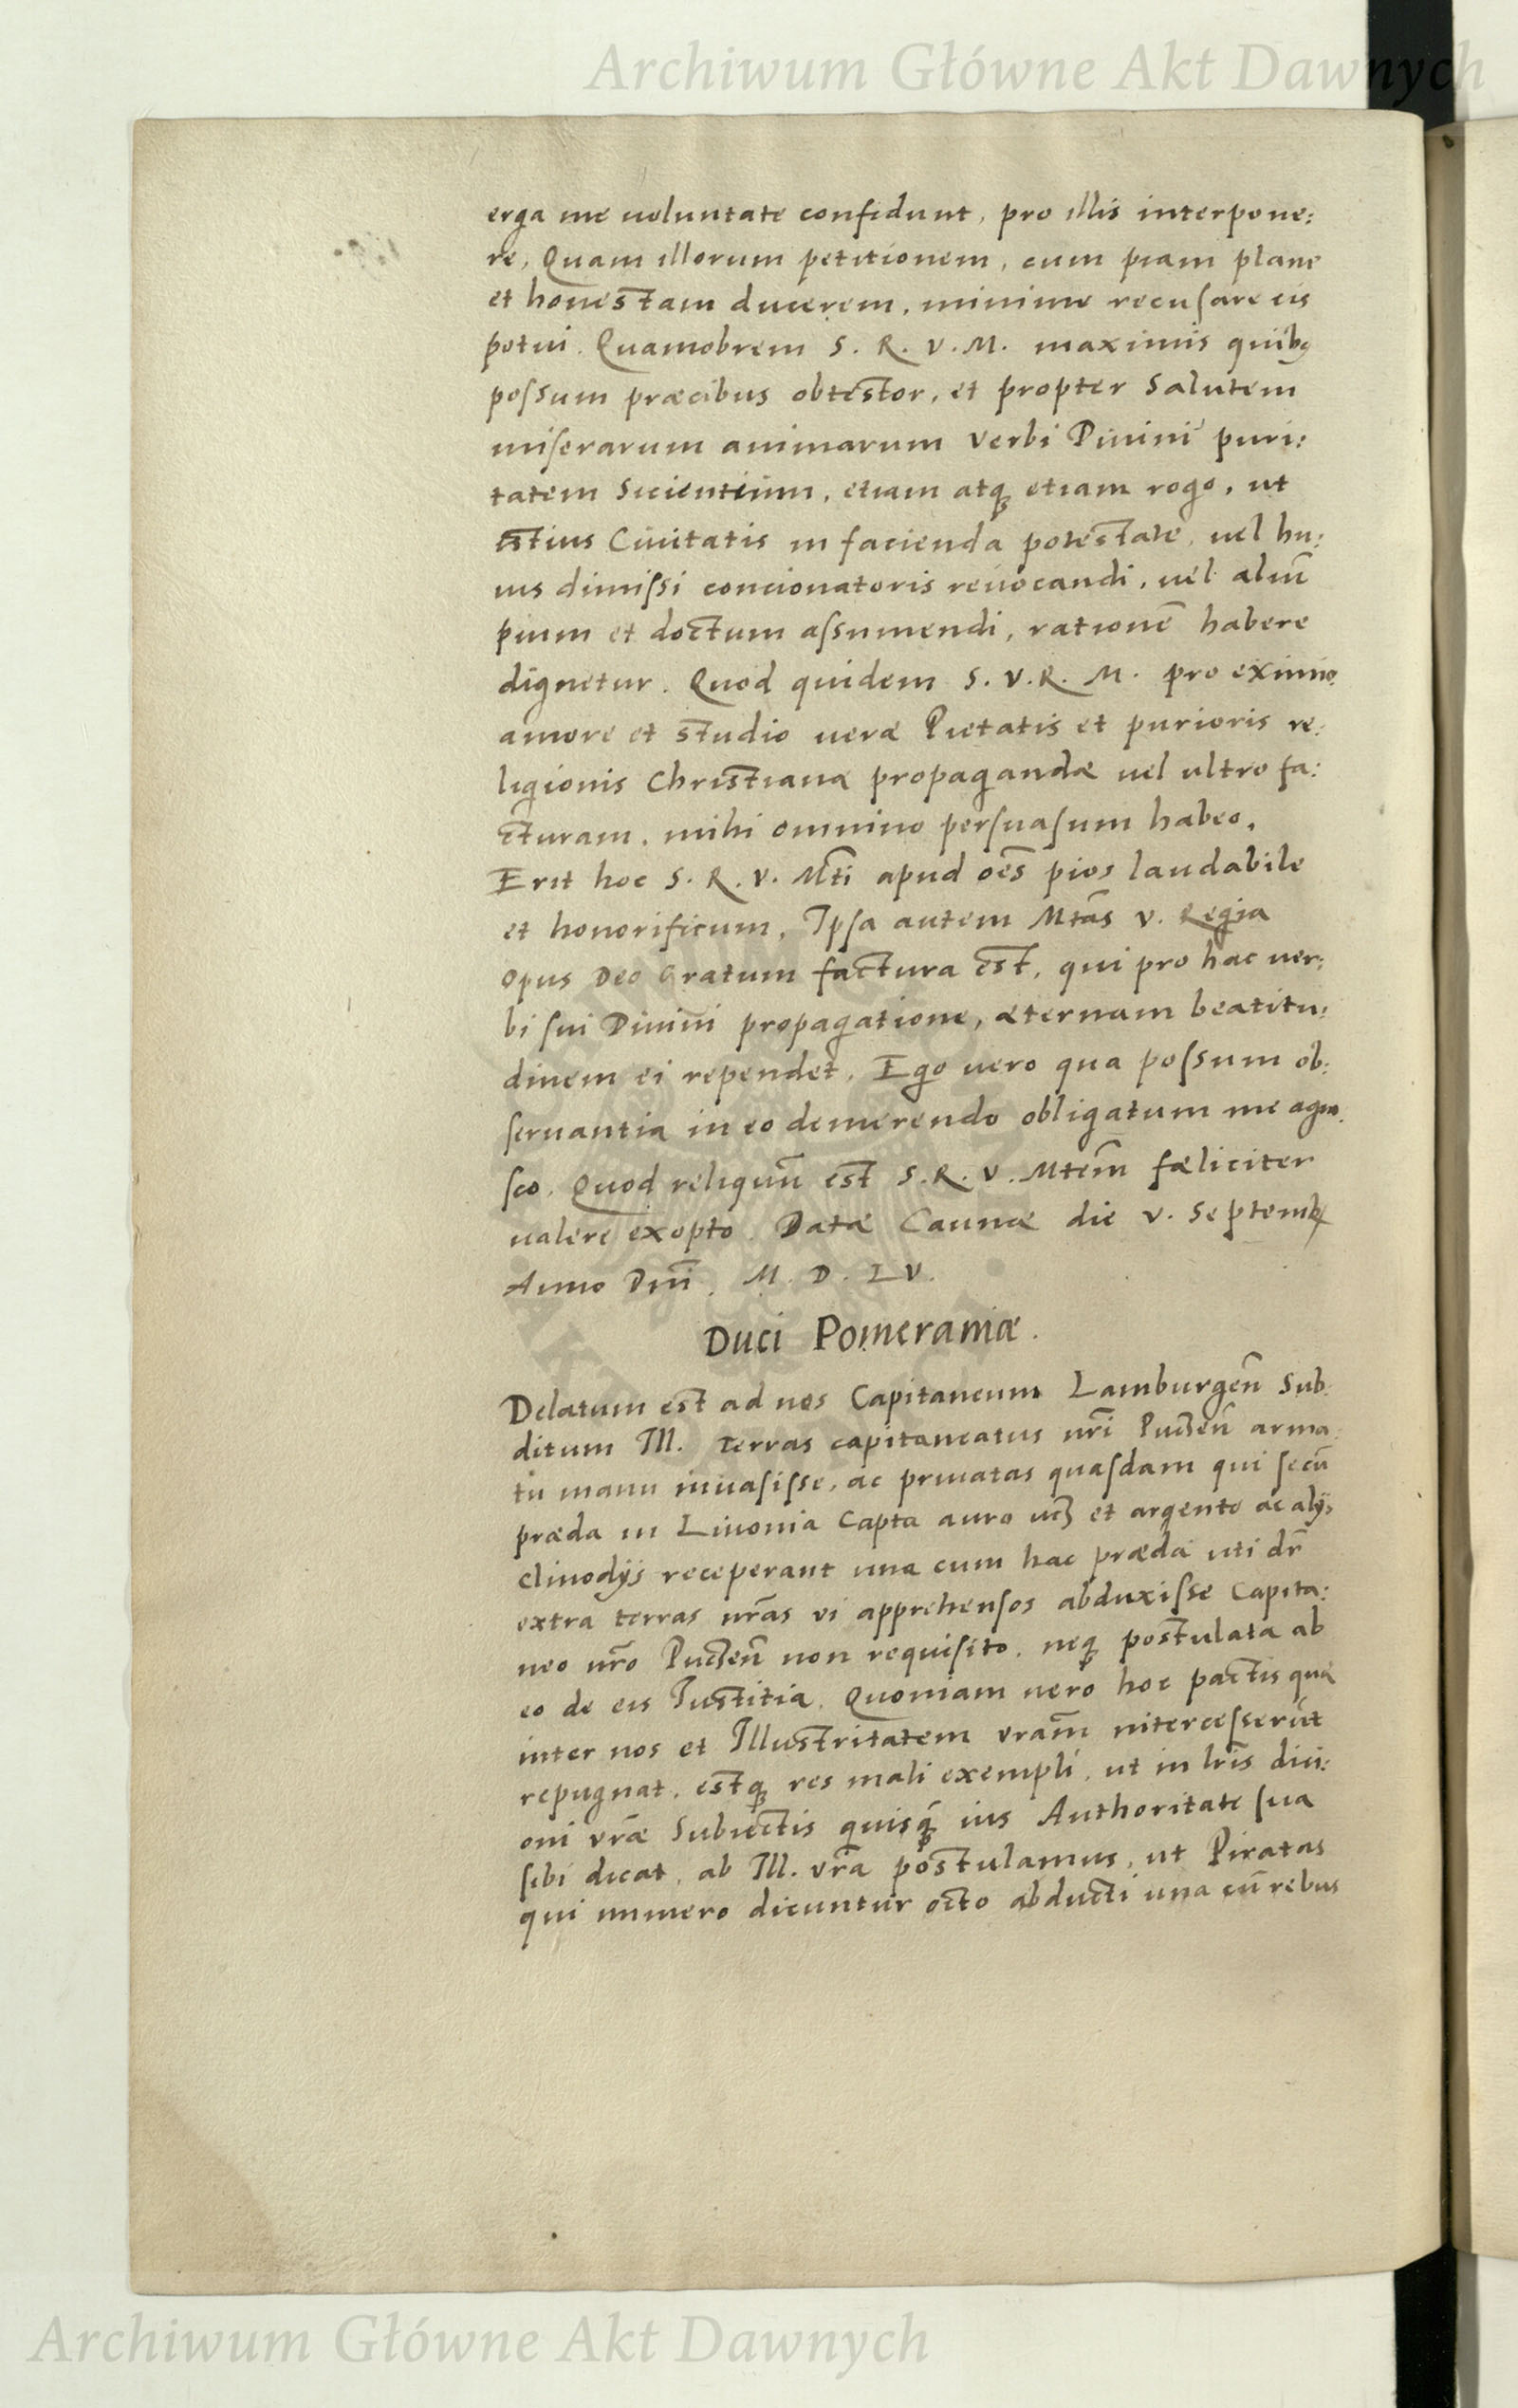 Archiwum Główne Akt Dawnych
erga me uoluntate confidunt, pro illis interpone:
re, Quam illorum petitionem, cum piam plane
et honestam ducerem, minime recusare eis
potui. Quamobrem S. R. V. M. maximis quibꝫ
possum præcibus obtestor, et propter Salutem
miserarum animarum Verbi Diuini puri:
tatem Sicientium, etiam atqꝫ etiam rogo, ut
istius Ciuitatis in facienda potestate, uel hu:
ius dimissi concionatoris reuocandi, uel aliū
pium et doctum assumendi, rationē habere
dignetur. Quod quidem S. V. R. M. pro eximio
amore et studio ueræ Pietatis et purioris re:
ligionis Christianæ propagandæ uel ultro fa:
cturam, mihi omnino persuasum habeo.
Erit hoc S. R. V. Mti apud oēs pios laudabile
et honorificum, Ipsa autem Mtās V. Regia
opus Deo Gratum factura est, qui pro hac uer:
bi sui Diuini propagatione, æternam beatitu:
dinem ei rependet. Ego uero qua possum ob:
seruantia in eo demerendo obligatum me agno
sco. Quod reliquū est S. R. V. Mtem fæliciter
ualere exopto. Datæ Caunæ die V. Septemb
Anno Dni. M. D. LV.
Duci Pomeraniæ.
Delatum est ad nos Capitaneum Lamburgeñ Sub
ditum Ill. terras capitaneatus nri Pucceñ arma
tu manu inuasisse, ac priuatas quasdam qui secū
præda in Liuonia Capta auro ucꝫ et argento ac alijs
clinodijs receperant una cum hac præda uti dr̄
extra terras nrās vi apprehensos abduxisse Capita:
neo nrō Pucceñ non requisito, neqꝫ postulata ab
eo de eis Iustitia. Quoniam uero hoc pactis quæ
inter nos et Illustritatem vram intercesserūt
repugnat, estqꝫ res mali exempli, ut in lris dici:
oni vræ Subiectis quisqꝫ ius Authoritate sua
sibi dicat, ab Ill. vra postulamus, ut Piratas
qui numero dicuntur octo abducti una cū rebus
Archiwum Główne Akt Dawnych